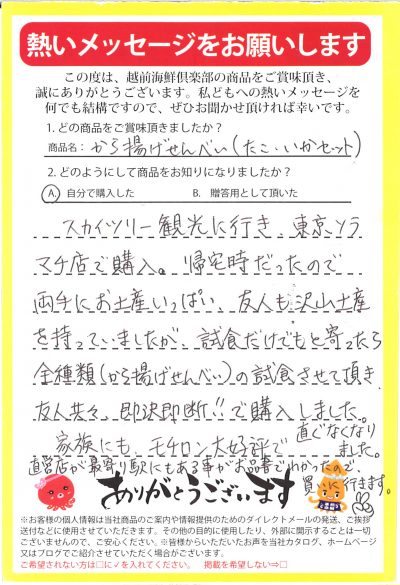 熱いメッセージをお願いします
この度は、越前海鮮倶楽部の商品をご賞味頂き、
誠にありがとうございます。私どもへの熱いメッセージを
何でも結構ですので、ぜひお聞かせ頂ければ幸いです。
1. どの商品をご賞味頂きましたか?
商品名: から揚げせんべい(たこ・いかセット)
2. どのようにして商品をお知りになりましたか?
A. 自分で購入した B. 贈答用として頂いた
スカイツリー観光に行き、東京ソラ
マチ店で購入。帰宅時だったので
両手にお土産いっぱい、友人も沢山土産
を持っていましたが、試食だけでもと寄ったら
全種類(から揚げせんべい)の試食させて頂き、
友人共々、即決即断!!で購入しました。
家族にも、モチロン大好評で直ぐなくなりました。
直営店が最寄り駅にもある事がお品書でわかったので、
買いに行きます。
ありがとうございます
※お客様の個人情報は当社商品のご案内や情報提供のためのダイレクトメールの発送、ご挨拶
付などに使用させていただきます。その他の目的に使用したり、外部に開示することは一切
ございませんので、ご安心ください。※皆様からいただいたお声を当社カタログ、ホームページ
又はブログでご紹介させていただく場合がございます。
ご希望されない方は□に✓を入れてください。 掲載を希望しない⇒□